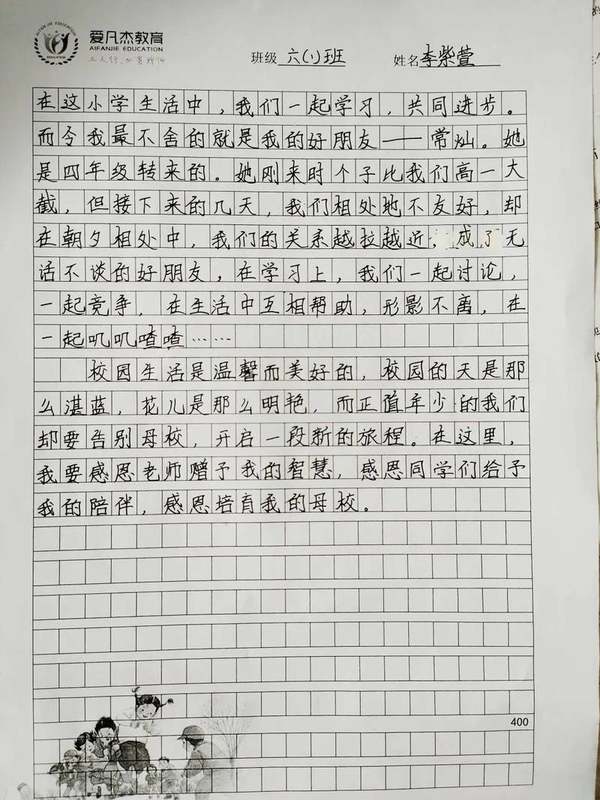 爱凡杰教育
AIFANJIE EDUCATION
班级 六(1)班 姓名 李紫萱
在这小学生活中，我们一起学习，共同进步。
而令我最不舍的就是我的好朋友——常灿。她
是四年级转来的。她刚来时个子比我们高一大
截，但接下来的几天，我们相处地不友好，却
在朝夕相处中，我们的关系越拉越近；成了无
话不谈的好朋友，在学习上，我们一起讨论，
一起竞争，在生活中互相帮助，形影不离，在
一起叽叽喳喳……
校园生活是温馨而美好的，校园的天是那
么湛蓝，花儿是那么明艳，而正值年少的我们
却要告别母校，开启一段新的旅程。在这里，
我要感恩老师赠予我的智慧，感恩同学们给予
我的陪伴，感恩培育我的母校。
400